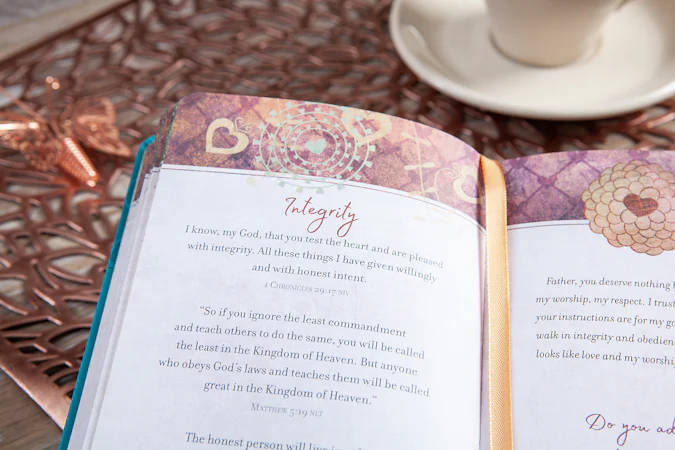 Integrity
I know, my God, that you test the heart and are pleased
with integrity. All these things I have given willingly
and with honest intent.
1 Chronicles 29:17 NIV
"So if you ignore the least commandment
and teach others to do the same, you will be called
the least in the Kingdom of Heaven. But anyone
who obeys God's laws and teaches them will be called
great in the Kingdom of Heaven."
Matthew 5:19 NLT
The honest person will live
Father, you deserve nothing
my worship, my respect. I trust
your instructions are for my
walk in integrity and
looks like love and my
Do you